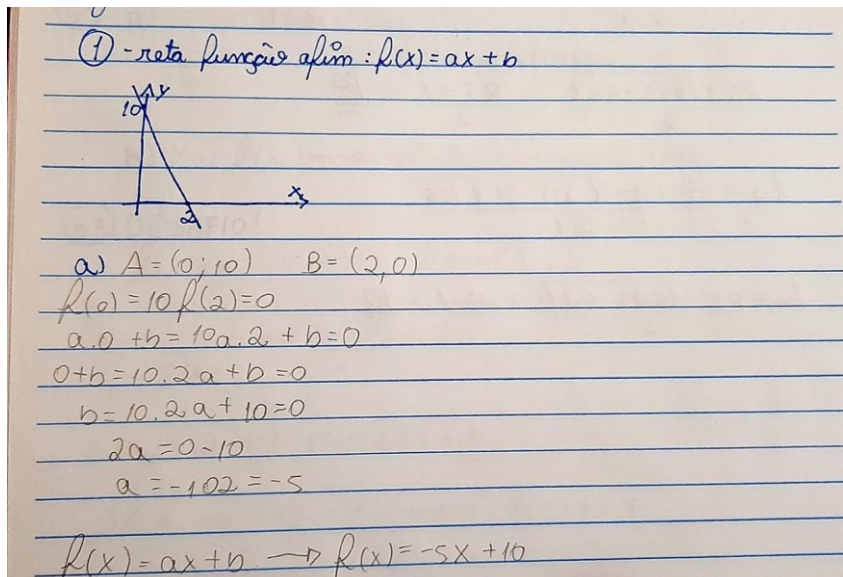 ① - reta função afim : f(x) = ax + b
y
10
x
2
a) A = (0 ; 10) B = (2, 0)
f(0) = 10 f(2) = 0
a.0 + b = 10a.2 + b = 0
0 + b = 10.2a + b = 0
b = 10.2a + 10 = 0
2a = 0 - 10
a = -102 = -5
f(x) = ax + b → f(x) = -5x + 10